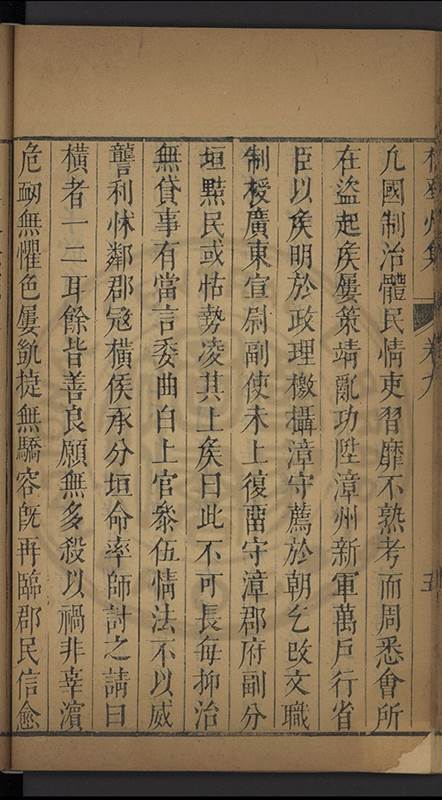 卷九
五
凢國制治體民情吏習靡不熟考而周悉會所
在盜起矦屢策靖亂功陞漳州新軍萬戶行省
臣以矦明於政理檄攝漳守薦於朝乞改文職
制授廣東宣尉副使未上復畱守漳郡府副分
垣㸃民或怙勢凌其上矦曰此不可長每抑治
無貸事有當言委曲白上官叅伍情法不以威
讋利怵鄰郡冦橫侯承分垣命率師討之請曰
橫者一二耳餘皆善良願無多殺以禍非辜濵
危𨜖無懼色屢䡄㨗無驕容旣再臨郡民信愈